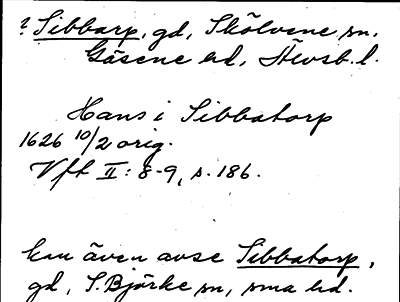 ? Sibbarp, gd, Skölvene sn,
Gäsene hd, Älvsb. l.
Hans i Sibbatorp
1626 10/2 orig.
Vft II: 8-9, s. 186.
kan även avse Sibbatorp,
gd, S. Björke sn, sma hd.